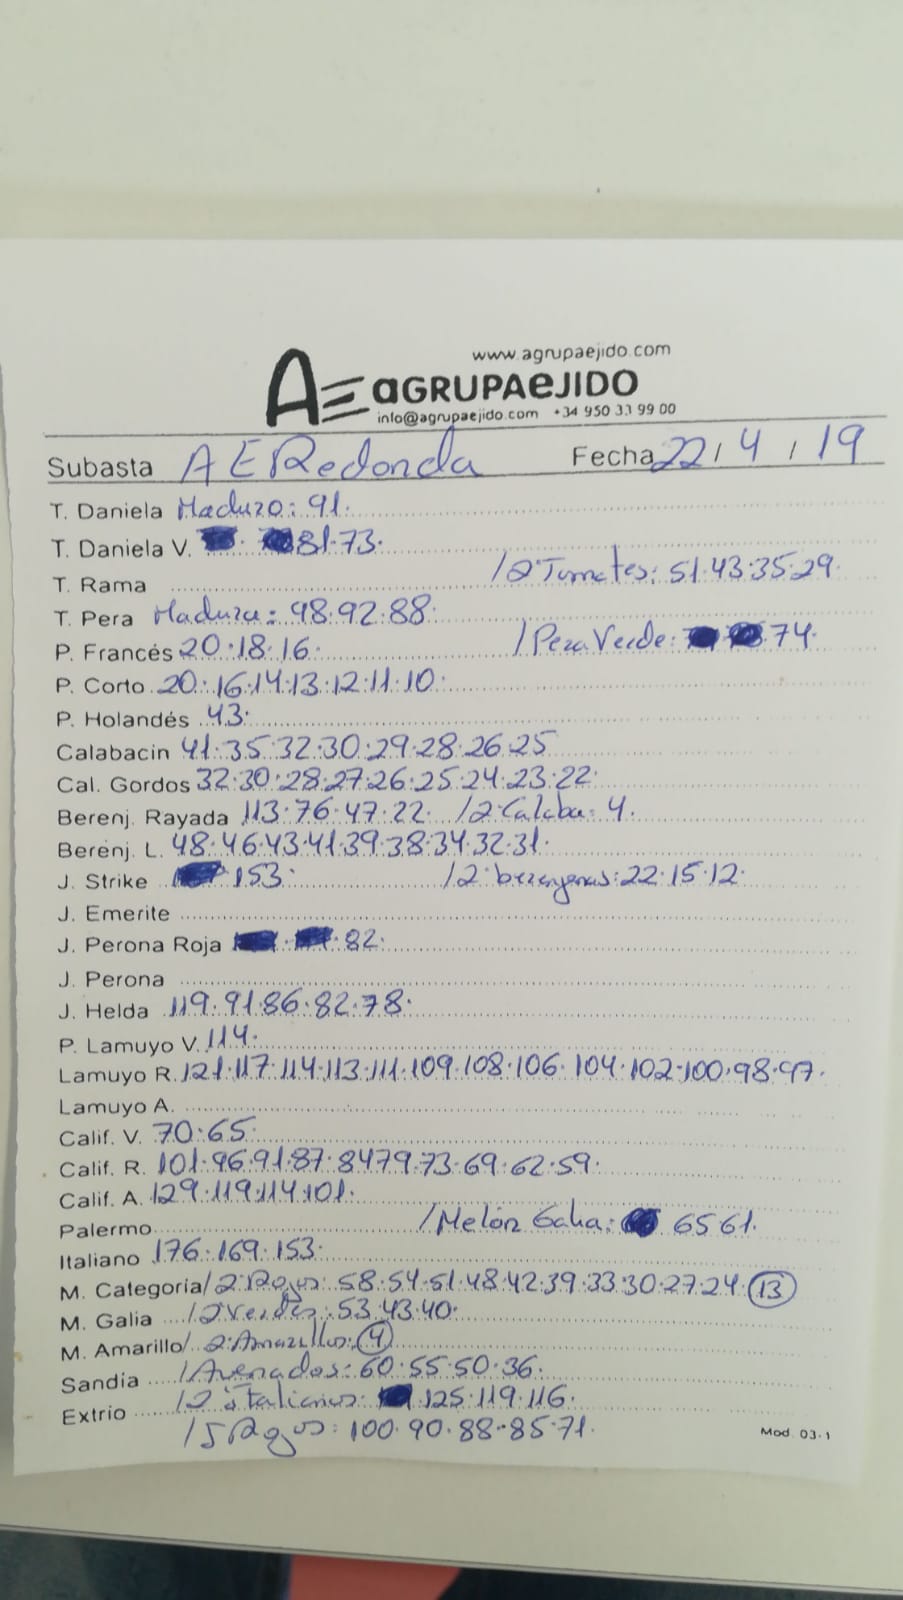 www.agrupaejido.com
AE aGRUPAeJIDO
info@agrupaejido.com +34 950 33 99 00
Subasta AERedonda Fecha 22/4/19
T. Daniela Maduro: 91.
T. Daniela V. 81.73.
T. Rama /2ª Tomates: 51.43.35.29.
T. Pera Madura: 98.92.88.
P. Francés 20.18.16. /Pera Verde: 74.
P. Corto 20.16.14.13.12.11.10.
P. Holandés 43.
Calabacin 41.35.32.30.29.28.26.25
Cal. Gordos 32.30.28.27.26.25.24.23.22.
Berenj. Rayada 113.76.47.22. /2ª Calaba: 4.
Berenj. L. 48.46.43.41.39.38.34.32.31.
J. Strike 153. /2ª berenjenas: 22.15.12.
J. Emerite
J. Perona Roja 82.
J. Perona
J. Helda 119.91.86.82.78.
P. Lamuyo V. 114.
Lamuyo R. 121.117.114.113.111.109.108.106.104.102.100.98.97.
Lamuyo A.
Calif. V. 70.65.
Calif. R. 101.96.91.87.84.79.73.69.62.59.
Calif. A. 129.119.114.101.
Palermo /Melón Galia: 65 61.
Italiano 176.169.153.
M. Categoría /2ª Rojos: 58.54.51.48.42.39.33.30.27.24. 13
M. Galia /2ª Verdes: 53.43.40.
M. Amarillo /2ª Amarillos: 4
Sandía /Asurcados: 60.55.50.36.
Extrio /2ª italianos: 125.119.116.
/5 Rojos: 100.90.88.85.71.
Mod. 03-1